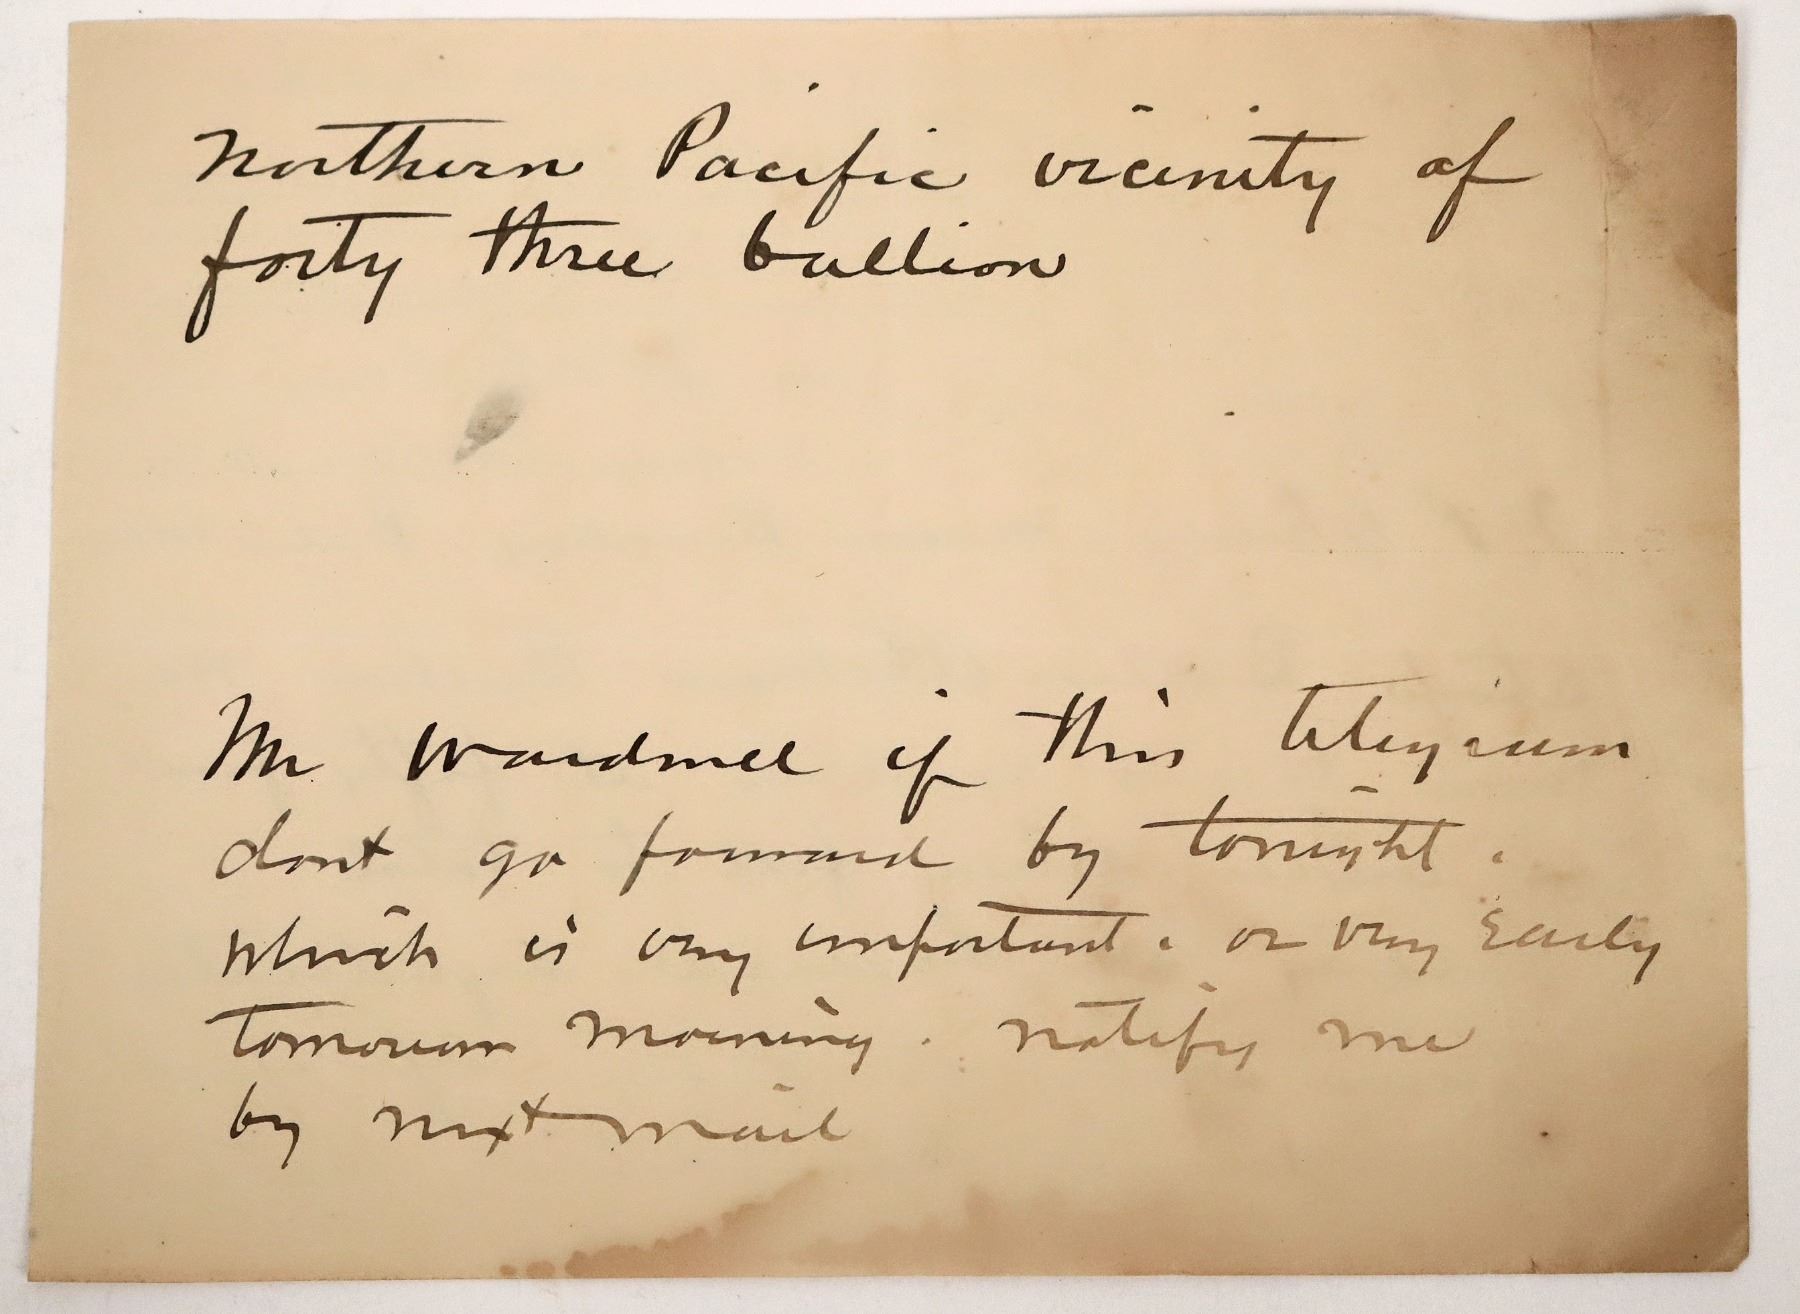 Northern Pacific vicinity of
forty three bullion
Mr Wardwell if this telegram
dont go forward by tonight.
which is very important. or very Early
tomorrow morning. notify me
by next mail